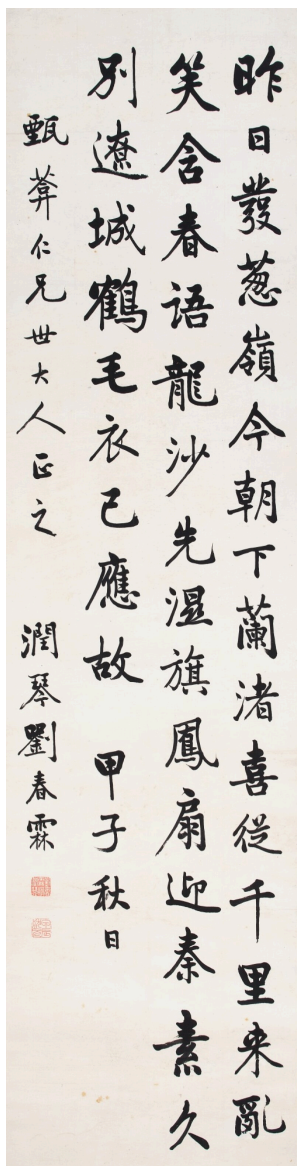 昨日發葱嶺今朝下蘭渚喜從千里來亂
笑含春語龍沙先濕旗鳳扇迎秦素久
別遼城鶴毛衣已應故 甲子秋日
甄葊仁兄世大人正之 潤琴劉春霖